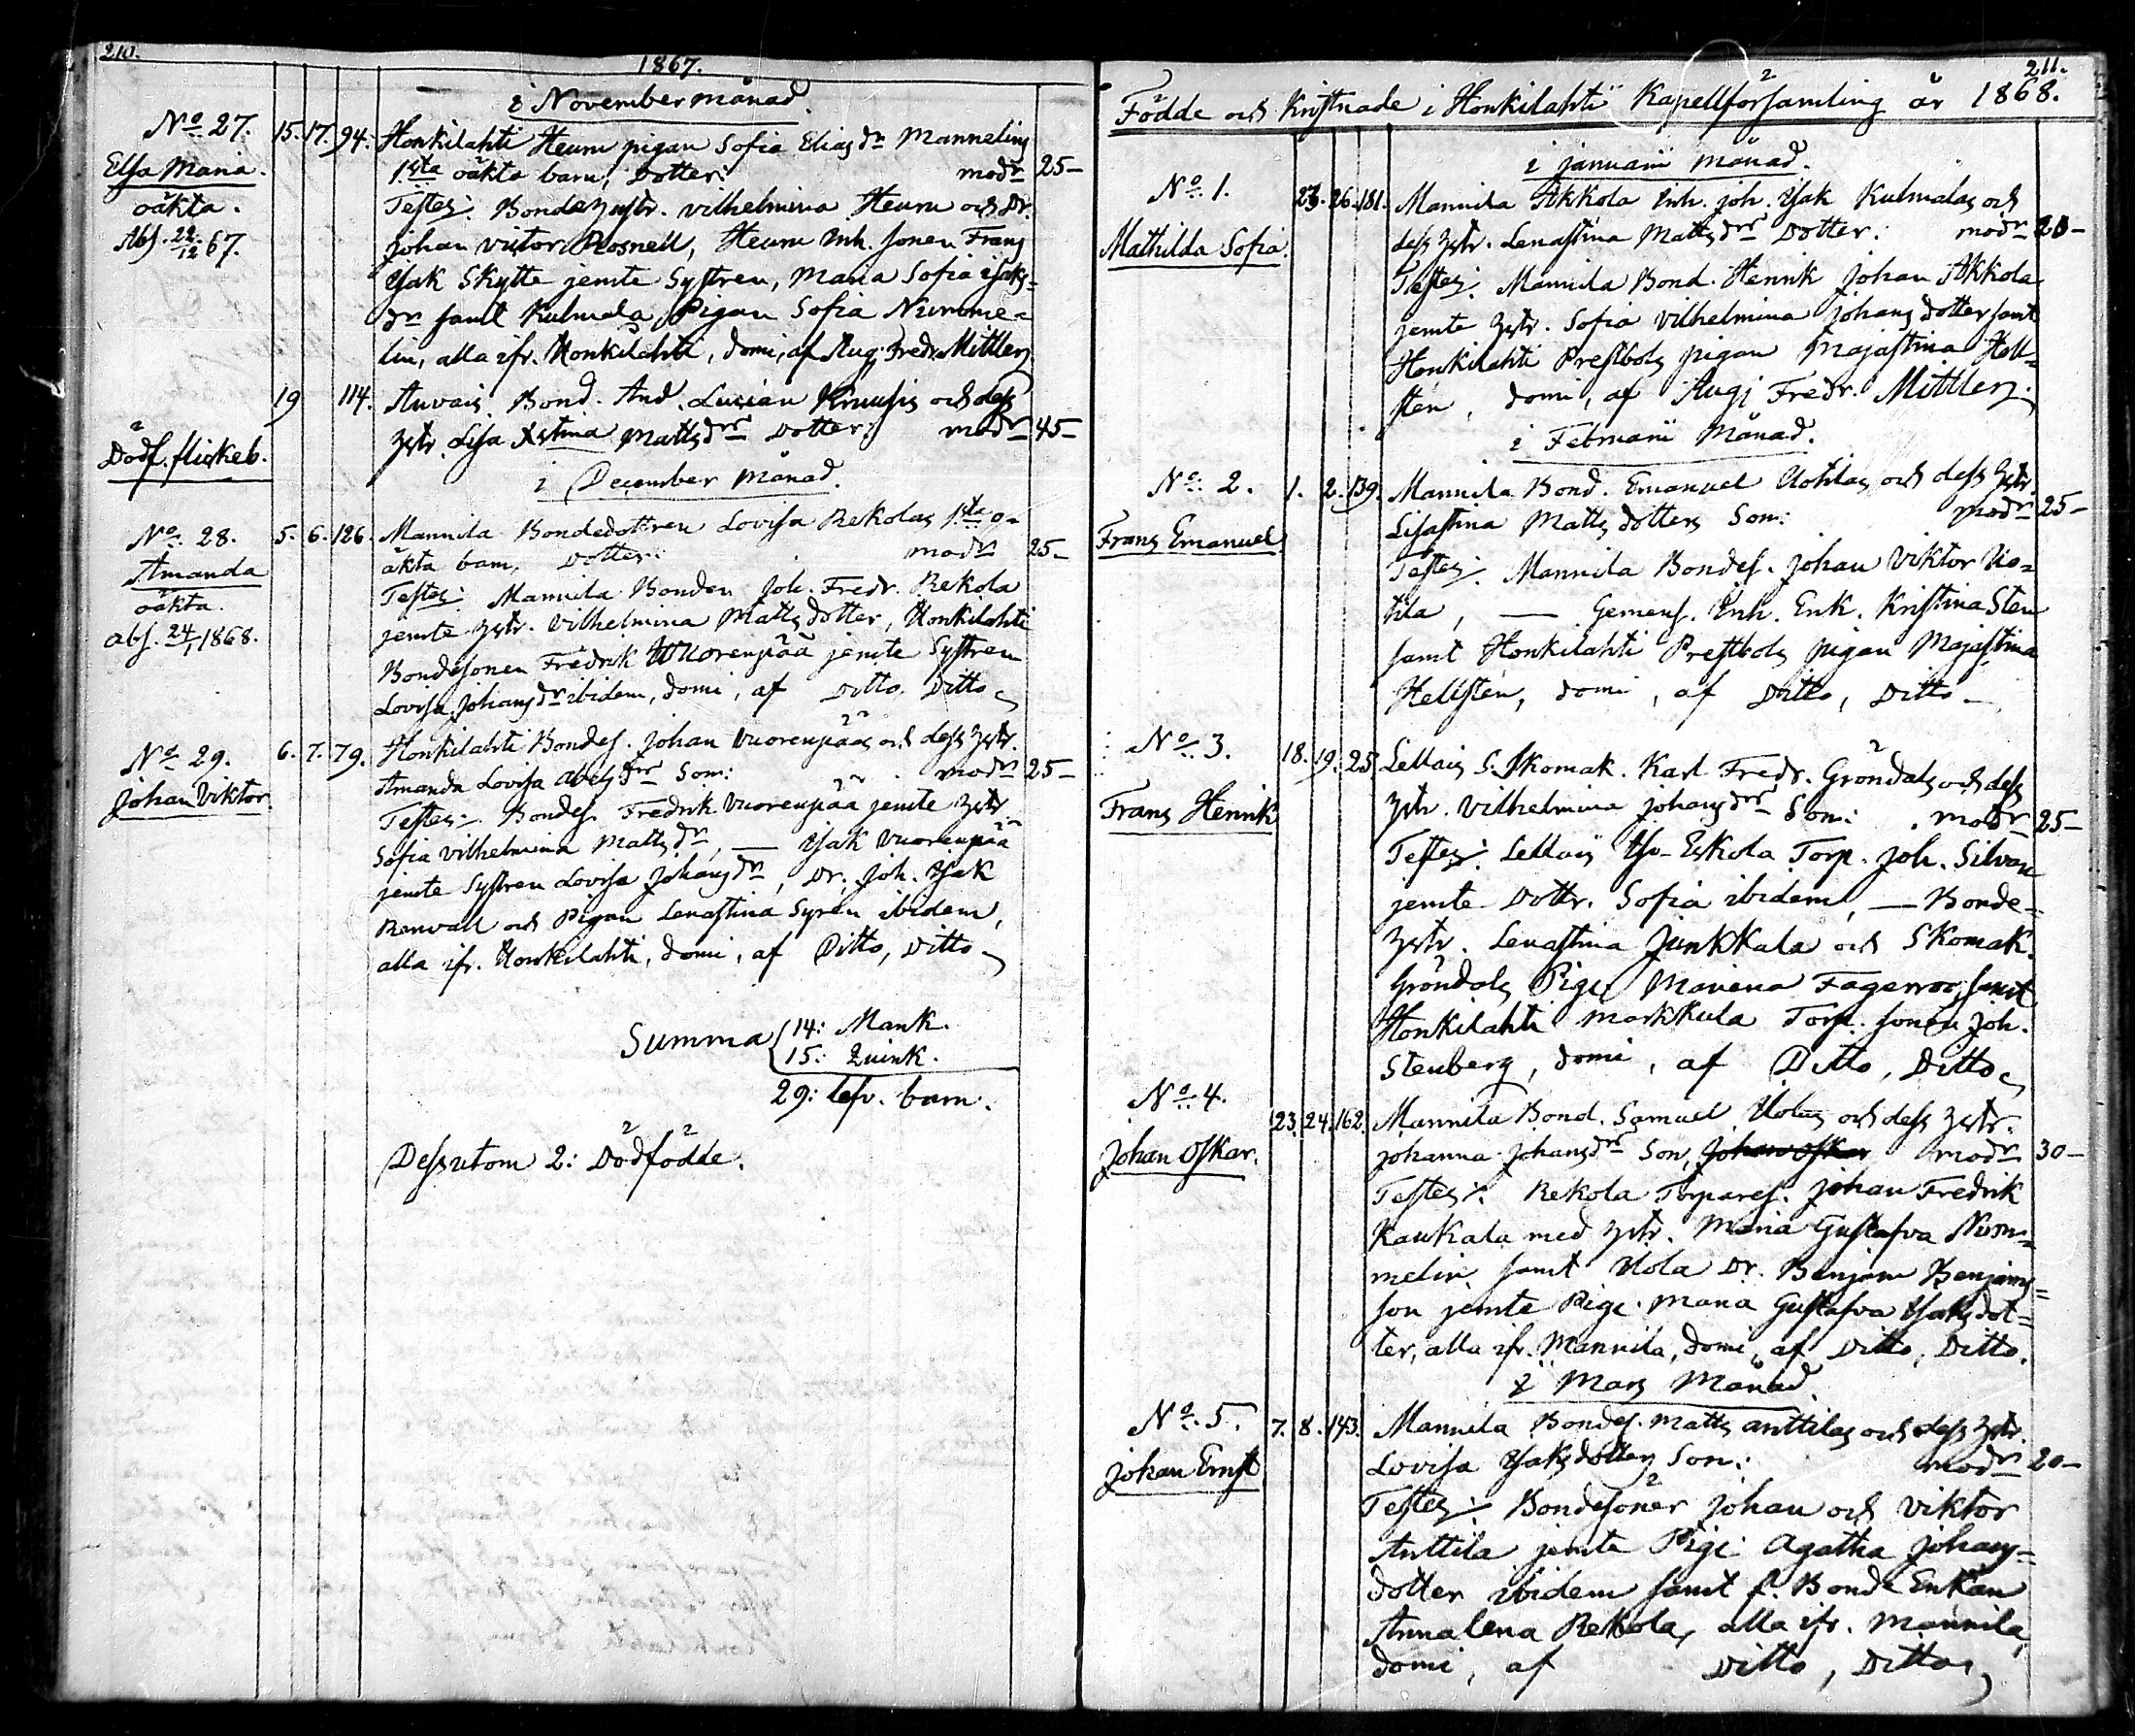 210.
1867.
i November månad.
No. 27. 15. 17. 94. Honkilahti Heuru pigan Sofia Eliasdr Mannelins
Elsa Maria. 1sta oäkta barn, Dotter: modr 25-
oäkta. Testes: Bondehustr. Vilhelmina Heuru och Dr.
Abs. 22/12 67. Johan Victor Rosnell, Heuru Inh. sonen Frans
Isak Skytte jemte Systren, Maria Sofia Isaks-
dr samt Kulmala Pigan Sofia Numme-
lin, alla ifr. Honkilahti, domi, af Aug. Fredr. Mittler
19 114. Auvais Bond. And. Lucian Knuusis och dess
Dödf. flickeb. hstr. Lisa Xstina Mattsdrs Dotter: modr 45-
i December Månad.
No. 28. 5. 6. 126. Mannila Bondedottren Lovisa Rekolas 1sta o-
Amanda äkta barn, Dotter: modr 25-
oäkta. Testes: Mannila Bonden Joh. Fredr. Rekola
abs. 24/1 1868. jemte hstr. Vilhelmina Matts dotter, Honkilahti
Bondesonen Fredrik Wuorenpää jemte Systren
Lovisa Johansdr ibidem, domi, af Ditto Ditto
No. 29. 6. 7. 79. Honkilahti Bondes. Johan Vuorenpääs och dess hstr.
Johan Viktor. Amanda Lovisa Abelsdrs Son: modr 25-
Testes: Bondes. Fredrik Vuorenpää jemte hstr.
Sofia Vilhelmina Mattsdr, — Isak Vuorenpää
jemte Systren Lovisa Johansdr, Dr. Joh. Isak
Renvall och Pigan Lenastina Syren ibidem,
alla ifr. Honkilahti, domi, af Ditto, Ditto
Summa 14: Mank.
15: Quink.
29: lefv. barn.
Dessutom 2: Dödfödde.
211.
Födde och Kristnade i Honkilahti Kapellförsamling år 1868.
i Januarii månad.
No. 1. 23. 26. 181. Mannila Akkola Inh. Joh. Isak Kulmalas och
Mathilda Sofia. dess hstr. Lenastina Mattsdrs Dotter: modr 20-
Testes: Mannila Bond. Henrik Johan Akkola
jemte hstr. Sofia Vilhelmina Johans dotter samt
Honkilahti Prestbols pigan Majastina Hell-
sten, domi, af Aug: Fredr. Mittler.
i Februarii Månad.
No. 2. 1. 2. 139. Mannila Bond. Emanuel Uotilas och dess hstr.
Frans Emanuel Lisastina Matts dotters Son: modr 25-
Testes: Mannila Bondes. Johan Viktor Uo-
tila, — Gemens. Inh. Enk. Kristina Sten
samt Honkilahti Prestbols pigan Majastina
Hellsten, domi, af Ditto, Ditto -
No. 3. 18. 19. 25. Lellais S. Skomak. Karl Fredr. Gröndals och dess
Frans Henrik hstr. Vilhelmina Johansdrs Son: modr 25-
Testes: Lellais Eskola Torp. Joh. Silvan
jemte Dottr. Sofia ibidem, — Bonde-
hstr. Lenastina Junkkala och Skomak.
Gröndals Piga Mariena Fagerroos, samt
Honkilahti Markkula Torp. sonen Joh.
Stenberg, domi, af Ditto, Ditto
No. 4. 23. 24. 162. Mannila Bond. Samuel Uolas och dess hstr.
Johan Oskar. Johanna Johansdrs Son, Johan Oskar modr 30-
Testes: Rekola Torpares. Johan Fredrik
Kaukala med hstr. Maria Gustafva Num-
melin samt Uola Dr. Benjam Benjams-
son jemte Pig. Maria Gustafva Isaksdot-
ter, alla ifr. Mannila, domi, af Ditto, Ditto.
i Mars Månad.
No. 5. 7. 8. 143. Mannila Bondes. Matts Anttilas och dess hstr.
Johan Ernst Lovisa Isaksdotters Son: modr 20-
Testes: Bondesöner Johan och Viktor
Anttila jemte Pig. Agatha Johans-
dotter ibidem samt f. Bonde Enkan
Annalena Rekola, alla ifr. Mannila,
domi, af Ditto, Ditto